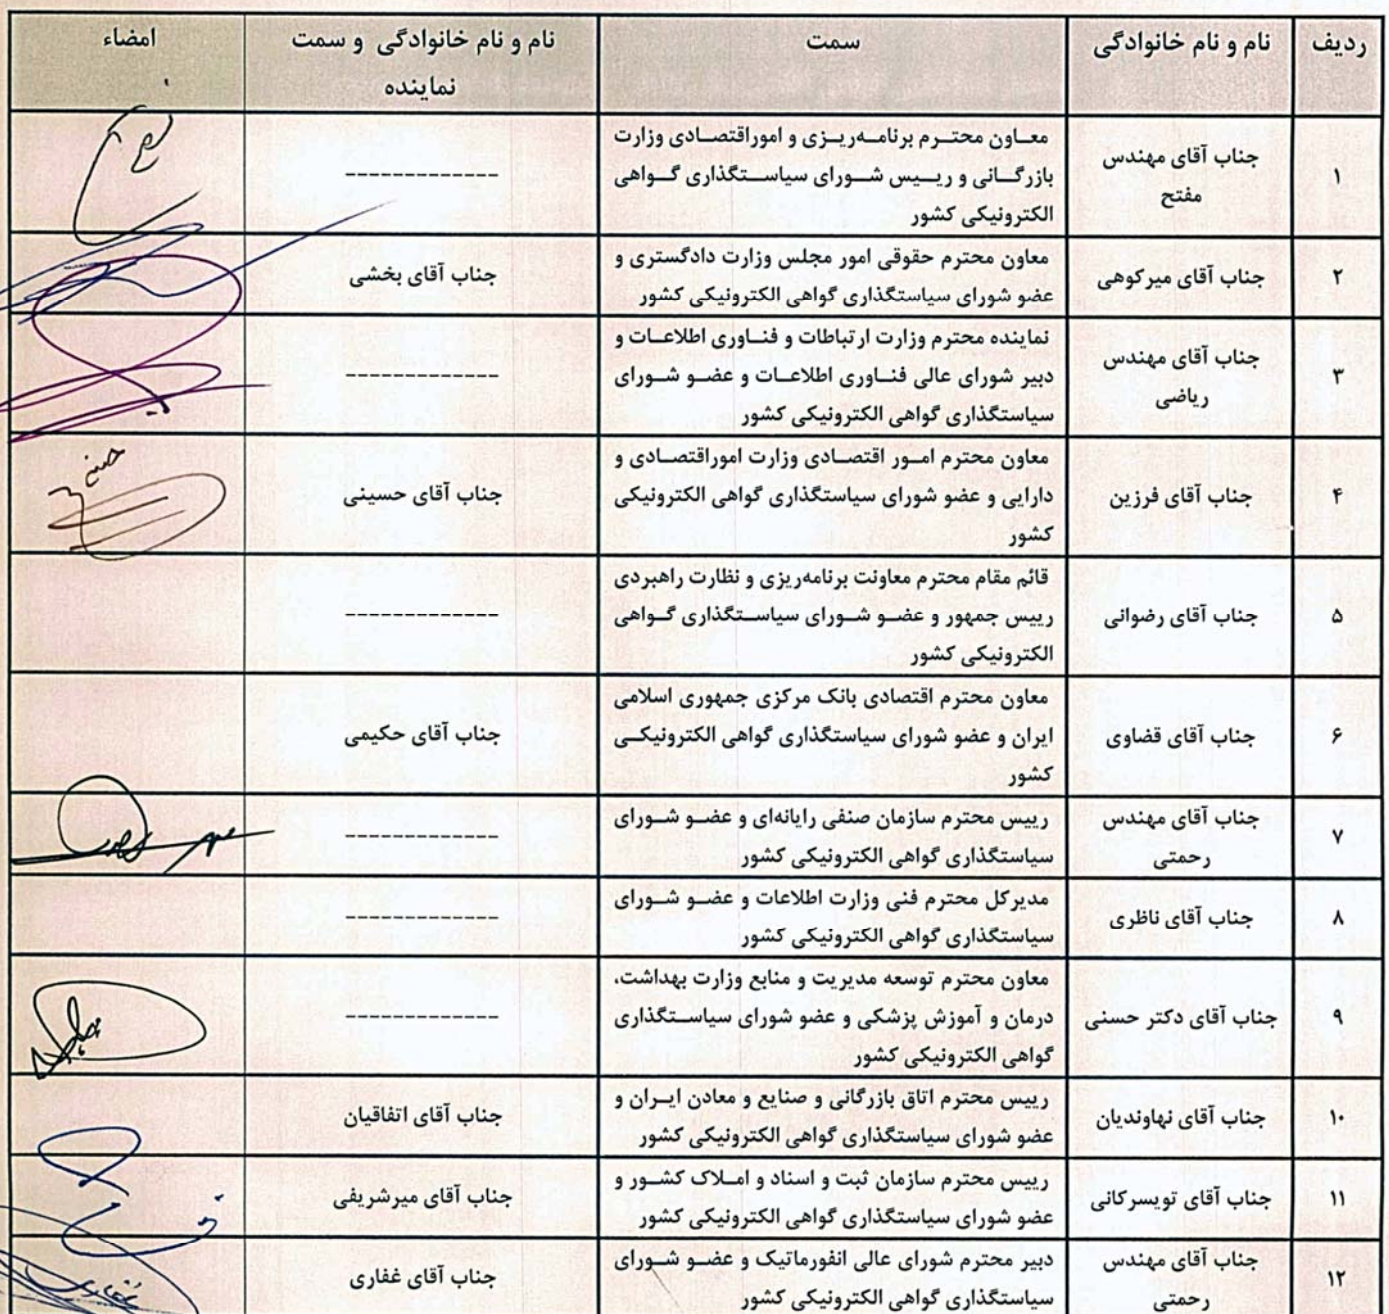 ردیف نام و نام خانوادگی سمت نام و نام خانوادگی و سمت امضاء
نماینده
۱ جناب آقای مهندس
مفتح
معاون محترم برنامه‌ریزی و اموراقتصادی وزارت
بازرگانی و رییس شورای سیاستگذاری گواهی
الکترونیکی کشور
-------------
۲ جناب آقای میرکوهی
معاون محترم حقوقی امور مجلس وزارت دادگستری و
عضو شورای سیاستگذاری گواهی الکترونیکی کشور
جناب آقای بخشی
۳ جناب آقای مهندس
ریاضی
نماینده محترم وزارت ارتباطات و فناوری اطلاعات و
دبیر شورای عالی فناوری اطلاعات و عضو شورای
سیاستگذاری گواهی الکترونیکی کشور
-------------
۴ جناب آقای فرزین
معاون محترم امور اقتصادی وزارت اموراقتصادی و
دارایی و عضو شورای سیاستگذاری گواهی الکترونیکی
کشور
جناب آقای حسینی
۵ جناب آقای رضوانی
قائم مقام محترم معاونت برنامه‌ریزی و نظارت راهبردی
رییس جمهور و عضو شورای سیاستگذاری گواهی
الکترونیکی کشور
-------------
۶ جناب آقای قضاوی
معاون محترم اقتصادی بانک مرکزی جمهوری اسلامی
ایران و عضو شورای سیاستگذاری گواهی الکترونیکی
کشور
جناب آقای حکیمی
۷ جناب آقای مهندس
رحمتی
رییس محترم سازمان صنفی رایانه‌ای و عضو شورای
سیاستگذاری گواهی الکترونیکی کشور
-------------
۸ جناب آقای ناظری
مدیرکل محترم فنی وزارت اطلاعات و عضو شورای
سیاستگذاری گواهی الکترونیکی کشور
-------------
۹ جناب آقای دکتر حسنی
معاون محترم توسعه مدیریت و منابع وزارت بهداشت،
درمان و آموزش پزشکی و عضو شورای سیاستگذاری
گواهی الکترونیکی کشور
-------------
۱۰ جناب آقای نهاوندیان
رییس محترم اتاق بازرگانی و صنایع و معادن ایران و
عضو شورای سیاستگذاری گواهی الکترونیکی کشور
جناب آقای اتفاقیان
۱۱ جناب آقای تویسرکانی
رییس محترم سازمان ثبت و اسناد و املاک کشور و
عضو شورای سیاستگذاری گواهی الکترونیکی کشور
جناب آقای میرشریفی
۱۲ جناب آقای مهندس
رحمتی
دبیر محترم شورای عالی انفورماتیک و عضو شورای
سیاستگذاری گواهی الکترونیکی کشور
جناب آقای غفاری